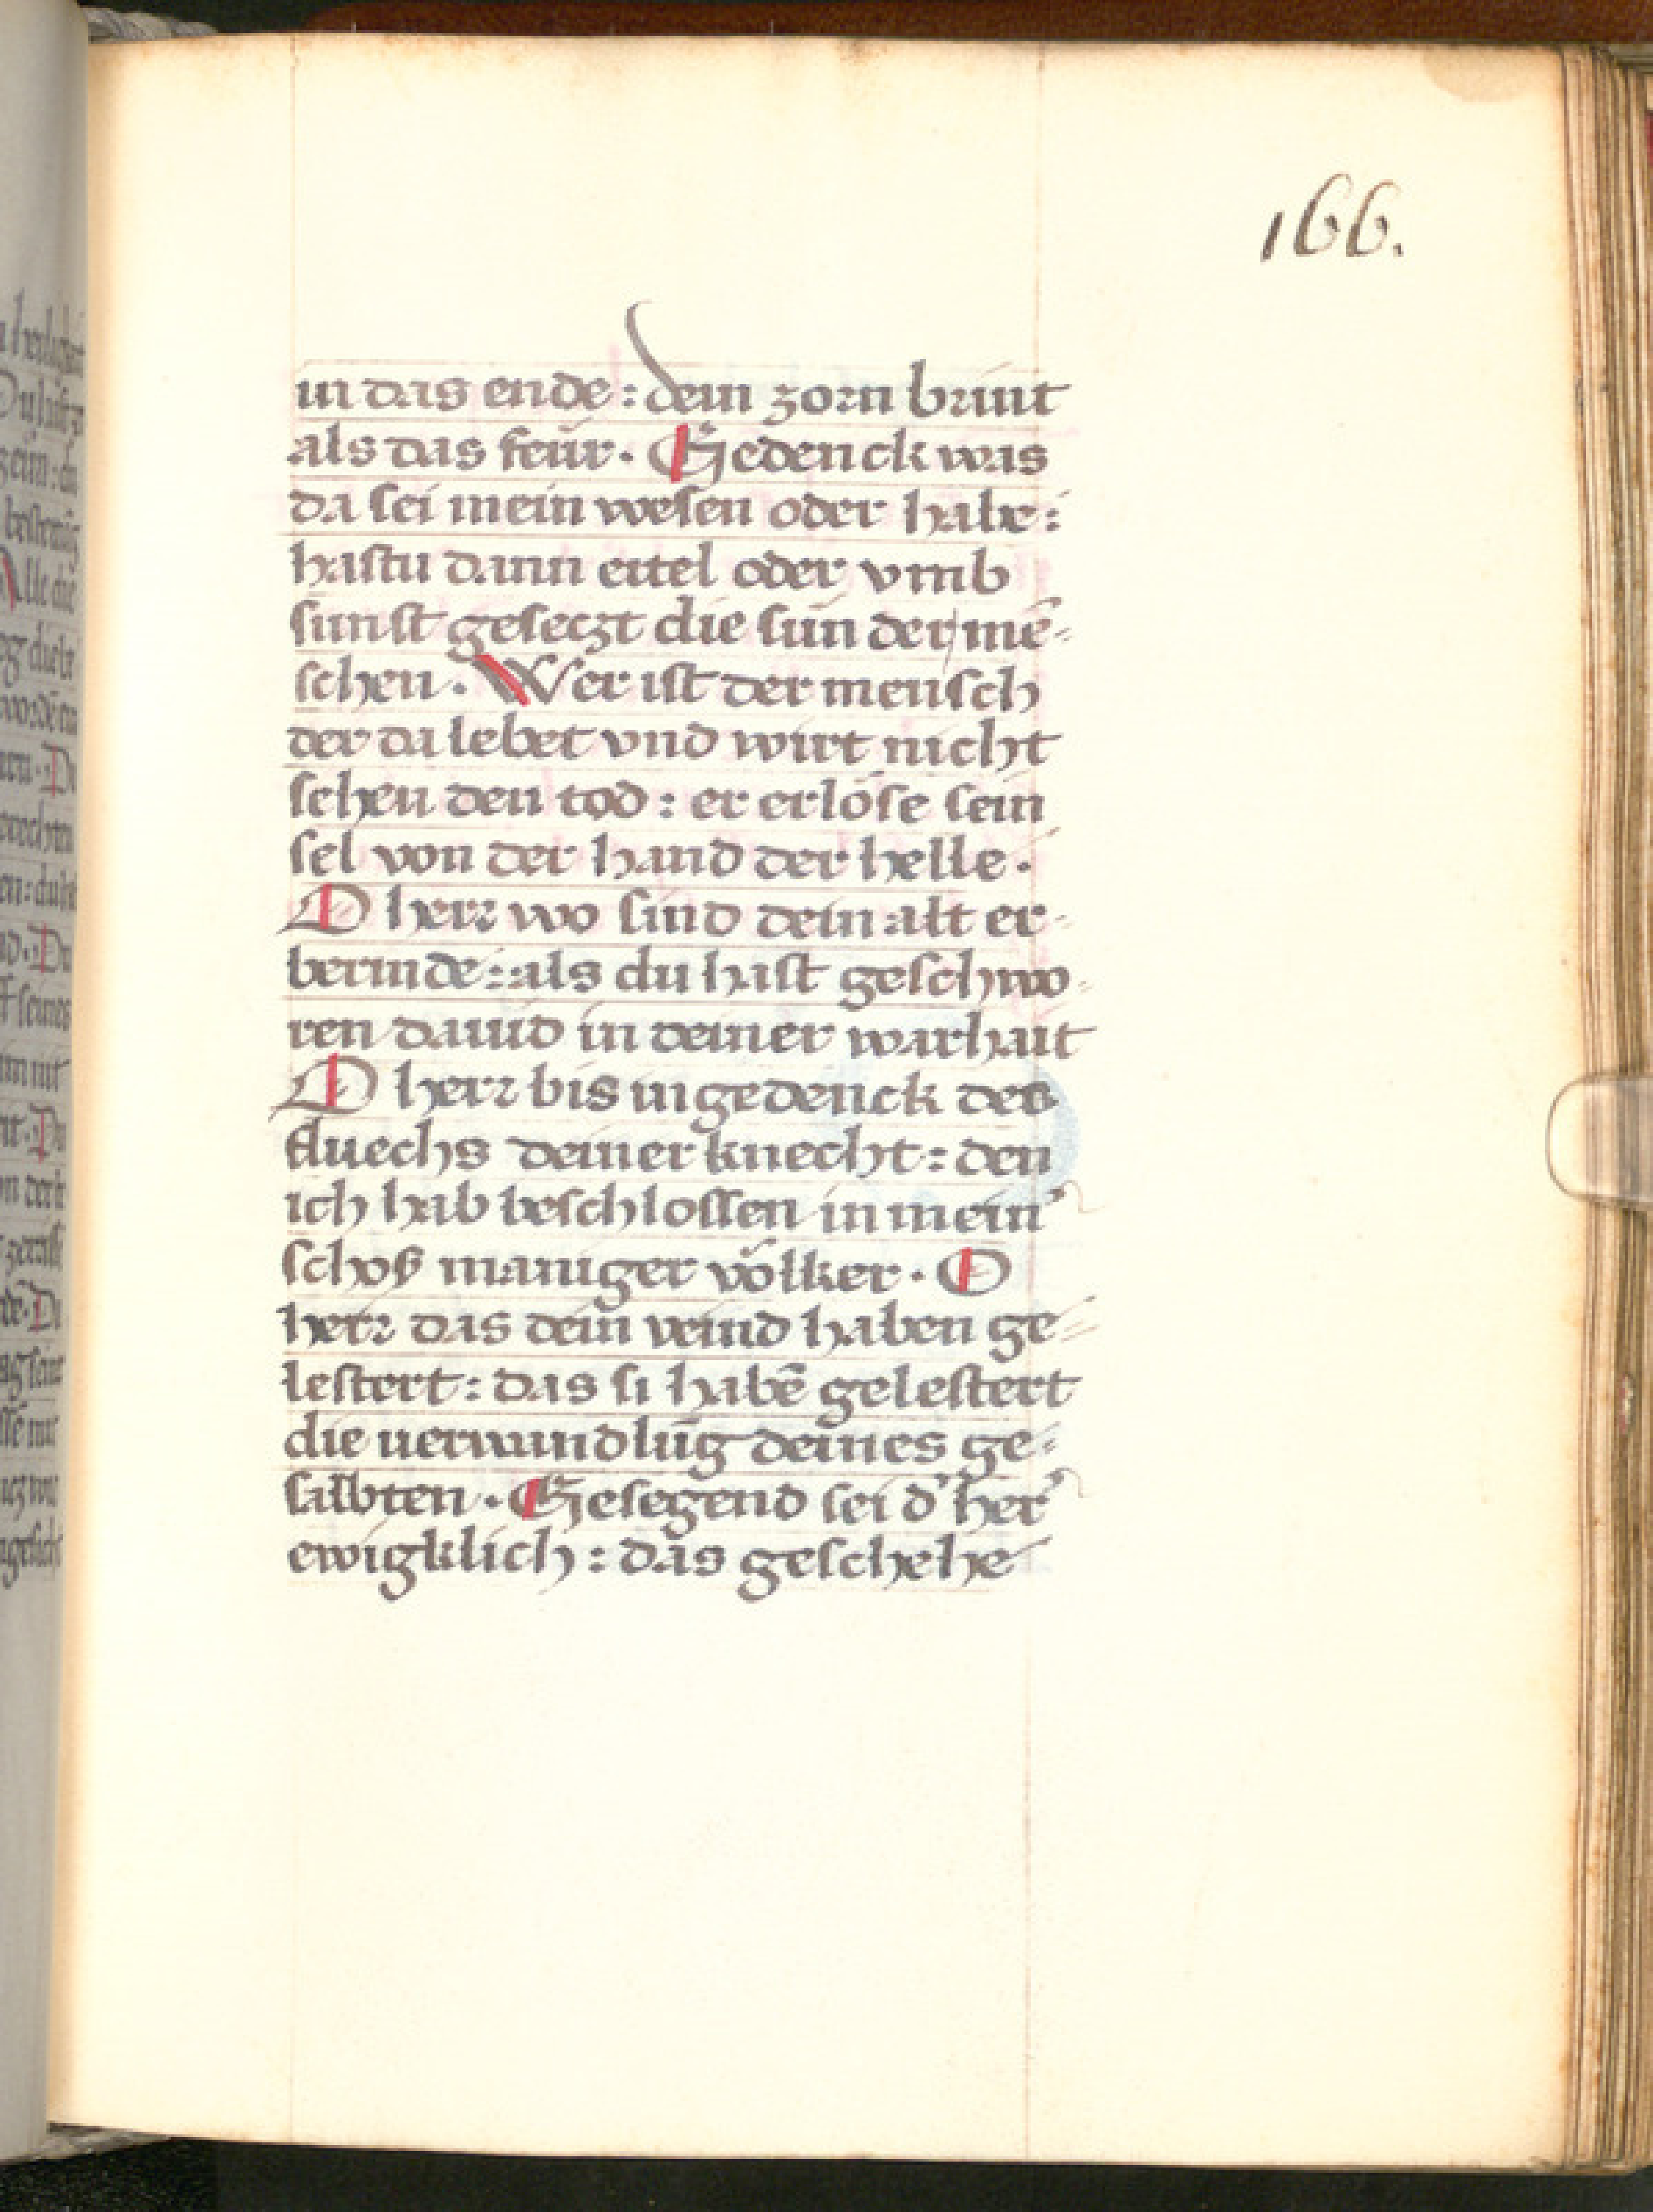 166.
in das ende : dein zorn brint
als das feür · Gedenck was
da sei mein wesen oder habe :
hastu dann eitel oder vmb
sunst gesetzt die sün der mē-
schen · Wer ist der mensch
der da lebet vnd wirt nicht
sehen den tod : er erlöse sein
sel von der hand der helle ·
O herr wo sind dein alt er-
bermde : als du hast geschwo-
ren dauid in deiner warhait
O herr bis ingedenck des
fluechs deiner knecht : den
ich hab beschlossen in mein̄
schoß maniger völker · O
herr das dein veind haben ge-
lestert : das si habē gelestert
die uerwandlūg deines ge-
salbten · Gesegend sei d' her'
ewigklich : das geschehe